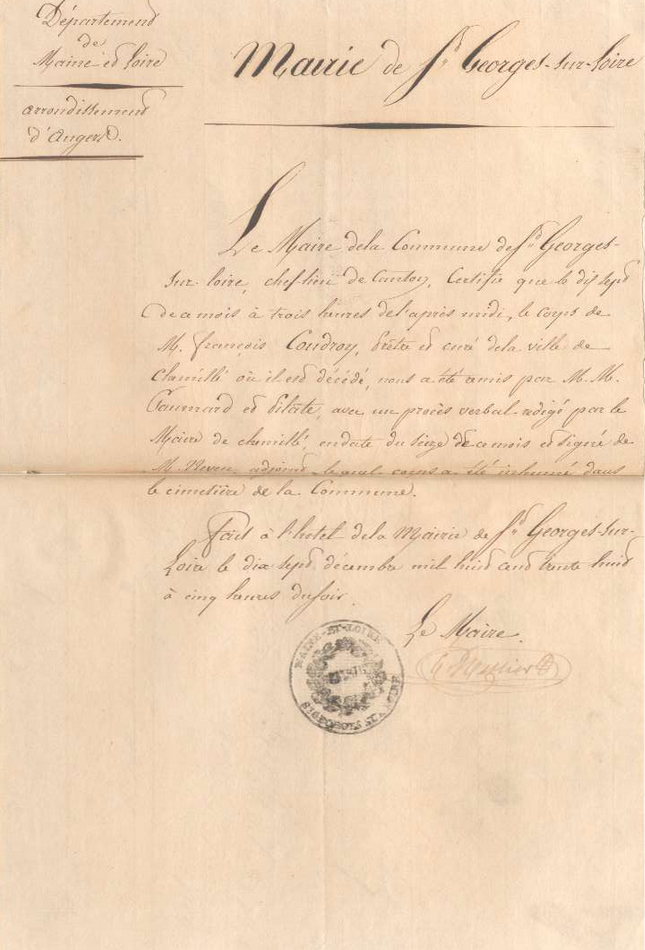 Département
de
Maine et Loire
arrondissement
d'Angers.
Mairie de St Georges-sur-Loire
Le Maire dela Commune de St Georges-
sur-loire, chef-lieu de Canton, Certifie que le dix sept
de ce mois à trois heures de l'après midi, le corps de
M. françois Coudroy, prêtre et curé dela ville de
chemillé où il est décédé, nous a été remis par M.M.
et Pilate, avec un procès verbal rédigé par le
Maire de chemillé, en date du seize de ce mois et signé de
M. adjoint, lequel corps a été inhumé dans
le cimetière de la Commune.
Fait à l'hotel dela Mairie de St Georges-sur-
Loire le dix sept décembre mil huit cent trente huit
à cinq heures du soir.
Le Maire.
MAINE-ET-LOIRE
MAIRIE
ST GEORGES SUR LOIRE